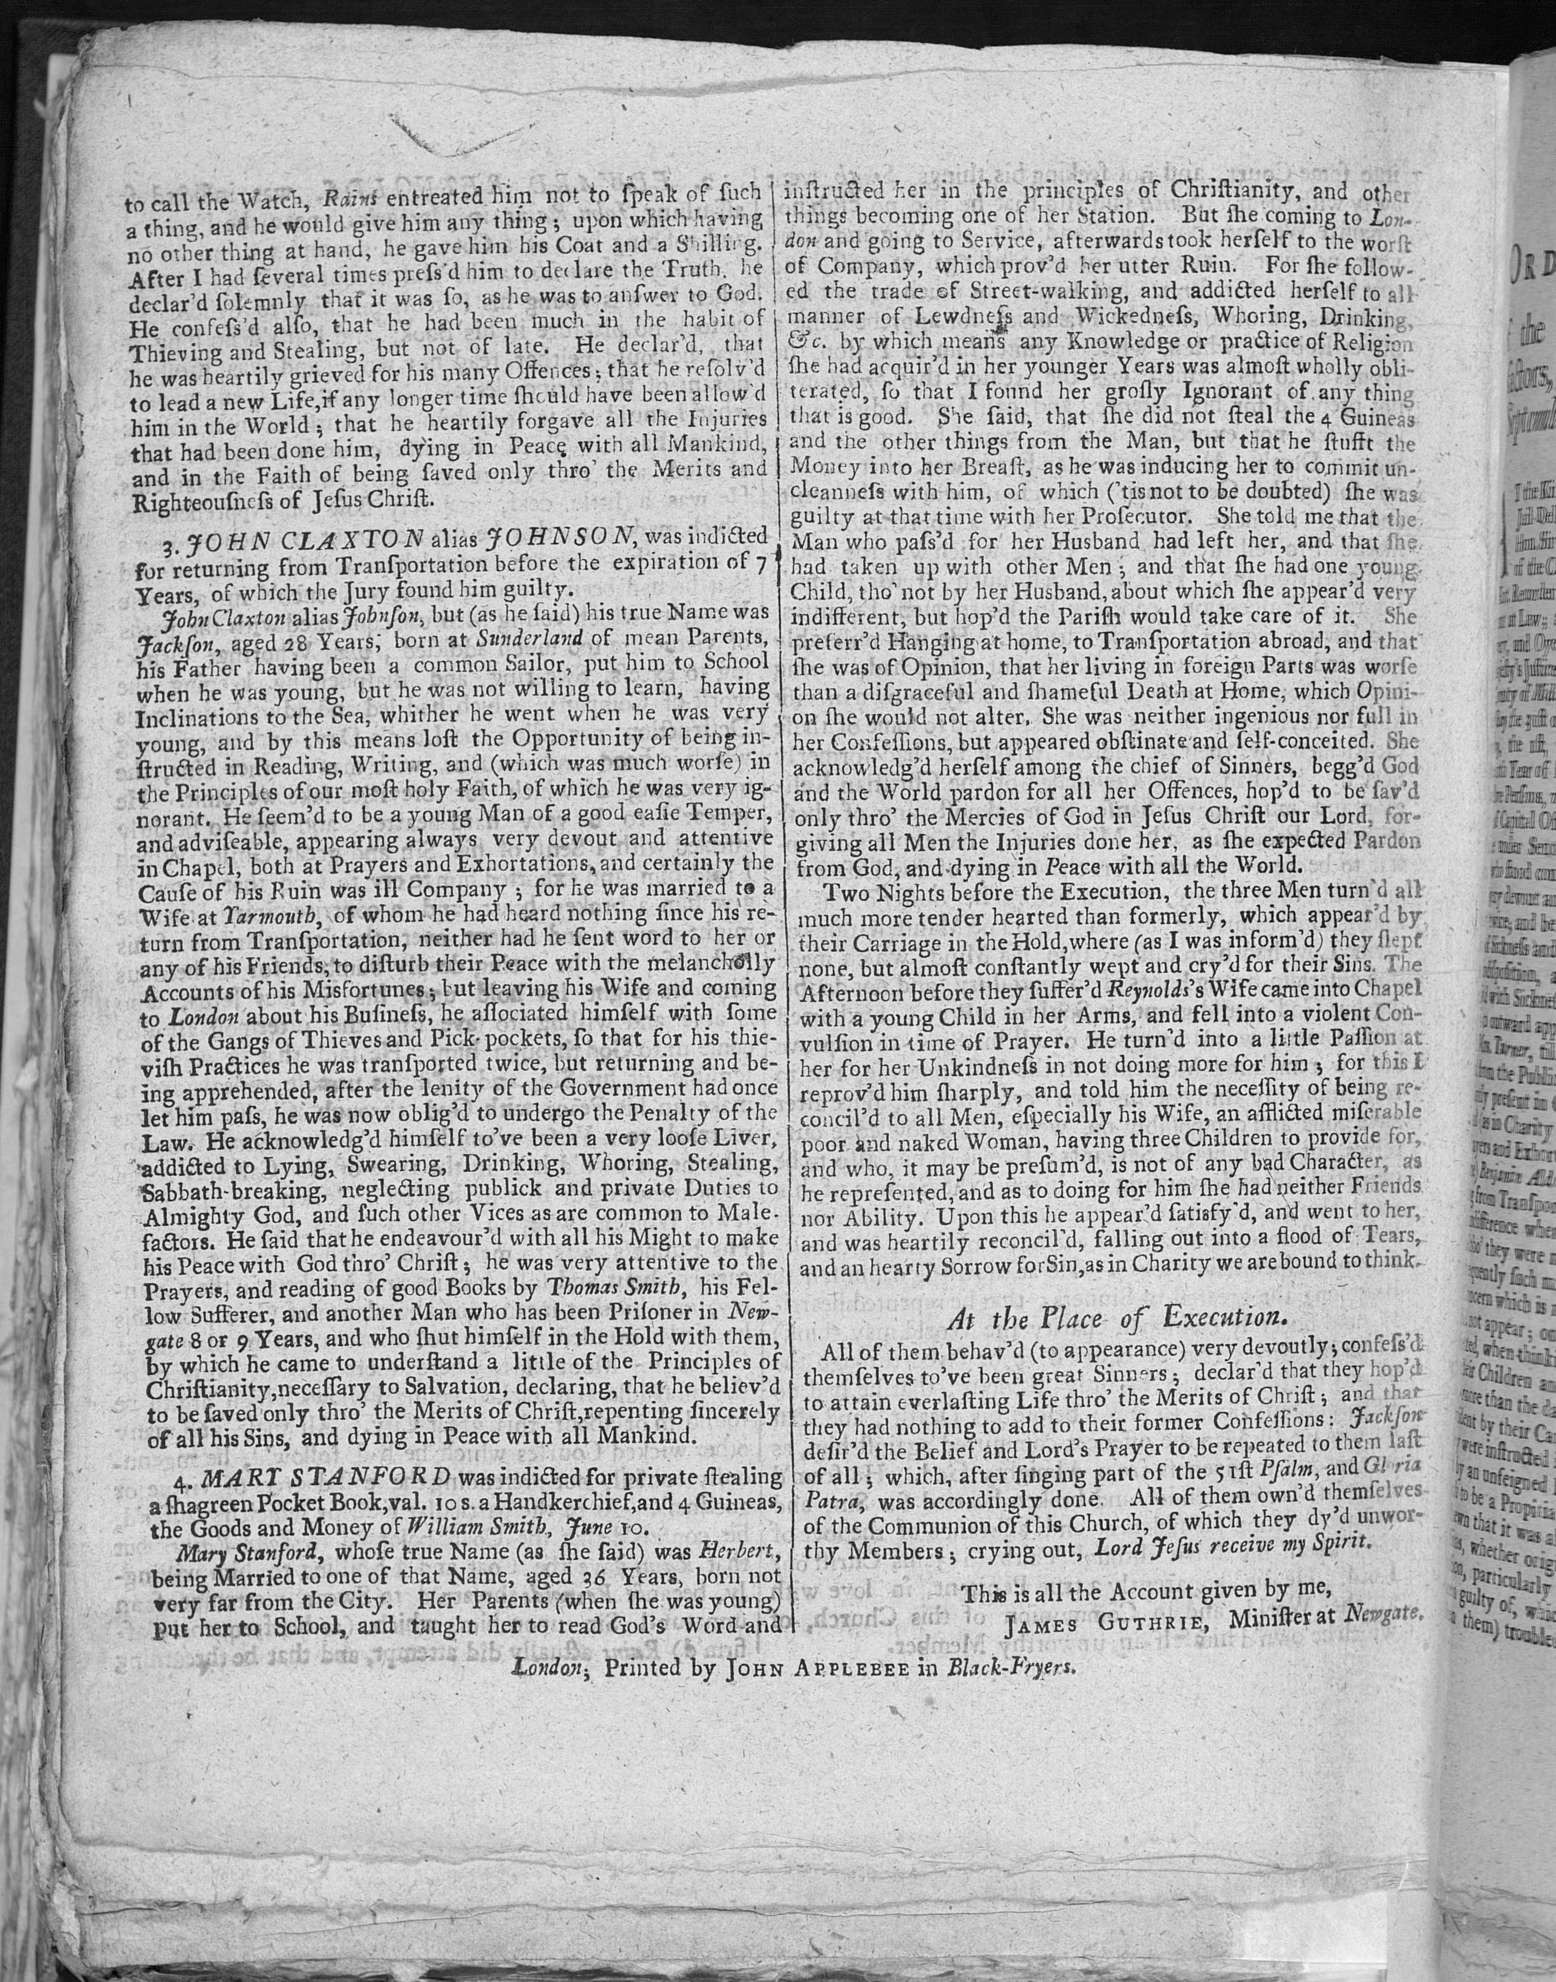 to call the Watch, Rains entreated him not to ſpeak of ſuch
a thing, and he would give him any thing; upon which having
no other thing at hand, he gave him his Coat and a Shilling.
After I had ſeveral times preſs'd him to declare the Truth, he
declar'd ſolemnly that it was ſo, as he was to anſwer to God.
He confeſs'd alſo, that he had been much in the habit of
Thieving and Stealing, but not of late. He declar'd, that
he was heartily grieved for his many Offences; that he reſolv'd
to lead a new Life, if any longer time ſhould have been allow'd
him in the World; that he heartily forgave all the Injuries
that had been done him, dying in Peace with all Mankind,
and in the Faith of being ſaved only thro' the Merits and
Righteouſneſs of Jeſus Chriſt.
3. JOHN CLAXTON alias JOHNSON, was indicted
for returning from Tranſportation before the expiration of 7
Years, of which the Jury found him guilty.
John Claxton alias Johnſon, but (as he ſaid) his true Name was
Jackſon, aged 28 Years, born at Sunderland of mean Parents,
his Father having been a common Sailor, put him to School
when he was young, but he was not willing to learn, having
Inclinations to the Sea, whither he went when he was very
young, and by this means loſt the Opportunity of being in-
ſtructed in Reading, Writing, and (which was much worſe) in
the Principles of our moſt holy Faith, of which he was very ig-
norant. He ſeem'd to be a young Man of a good eaſie Temper,
and adviſeable, appearing always very devout and attentive
in Chapel, both at Prayers and Exhortations, and certainly the
Cauſe of his Ruin was ill Company; for he was married to a
Wife at Yarmouth, of whom he had heard nothing ſince his re-
turn from Tranſportation, neither had he ſent word to her or
any of his Friends, to diſturb their Peace with the melancholly
Accounts of his Misfortunes; but leaving his Wife and coming
to London about his Buſineſs, he aſſociated himſelf with ſome
of the Gangs of Thieves and Pick-pockets, ſo that for his thie-
viſh Practices he was tranſported twice, but returning and be-
ing apprehended, after the lenity of the Government had once
let him paſs, he was now oblig'd to undergo the Penalty of the
Law. He acknowledg'd himſelf to've been a very looſe Liver,
addicted to Lying, Swearing, Drinking, Whoring, Stealing,
Sabbath-breaking, neglecting publick and private Duties to
Almighty God, and ſuch other Vices as are common to Male-
factors. He ſaid that he endeavour'd with all his Might to make
his Peace with God thro' Chriſt; he was very attentive to the
Prayers, and reading of good Books by Thomas Smith, his Fel-
low Sufferer, and another Man who has been Priſoner in New-
gate 8 or 9 Years, and who ſhut himſelf in the Hold with them,
by which he came to underſtand a little of the Principles of
Chriſtianity, neceſſary to Salvation, declaring, that he believ'd
to be ſaved only thro' the Merits of Chriſt, repenting ſincerely
of all his Sins, and dying in Peace with all Mankind.
4. MARY STANFORD was indicted for private ſtealing
a ſhagreen Pocket Book, val. 10 s. a Handkerchief, and 4 Guineas,
the Goods and Money of William Smith, June 10.
Mary Stanford, whoſe true Name (as ſhe ſaid) was Herbert,
being Married to one of that Name, aged 36 Years, born not
very far from the City. Her Parents (when ſhe was young)
put her to School, and taught her to read God's Word and
inſtructed her in the principles of Chriſtianity, and other
things becoming one of her Station. But ſhe coming to Lon-
don and going to Service, afterwards took herſelf to the worſt
of Company, which prov'd her utter Ruin. For ſhe follow-
ed the trade of Street-walking, and addicted herſelf to all
manner of Lewdneſs and Wickedneſs, Whoring, Drinking,
&c. by which means any Knowledge or practice of Religion
ſhe had acquir'd in her younger Years was almoſt wholly obli-
terated, ſo that I found her groſly Ignorant of any thing
that is good. She ſaid, that ſhe did not ſteal the 4 Guineas
and the other things from the Man, but that he ſtufft the
Money into her Breaſt, as he was inducing her to commit un-
cleanneſs with him, of which ('tis not to be doubted) ſhe was
guilty at that time with her Proſecutor. She told me that the
Man who paſs'd for her Husband had left her, and that ſhe
had taken up with other Men; and that ſhe had one young
Child, tho' not by her Husband, about which ſhe appear'd very
indifferent, but hop'd the Pariſh would take care of it. She
preferr'd Hanging at home, to Tranſportation abroad, and that
ſhe was of Opinion, that her living in foreign Parts was worſe
than a diſgraceful and ſhameful Death at Home, which Opini-
on ſhe would not alter. She was neither ingenious nor full in
her Confeſſions, but appeared obſtinate and ſelf-conceited. She
acknowledg'd herſelf among the chief of Sinners, begg'd God
and the World pardon for all her Offences, hop'd to be ſav'd
only thro' the Mercies of God in Jeſus Chriſt our Lord, for-
giving all Men the Injuries done her, as ſhe expected Pardon
from God, and dying in Peace with all the World.
Two Nights before the Execution, the three Men turn'd all
much more tender hearted than formerly, which appear'd by
their Carriage in the Hold, where (as I was inform'd) they ſlept
none, but almoſt conſtantly wept and cry'd for their Sins. The
Afternoon before they ſuffer'd Reynolds's Wife came into Chapel
with a young Child in her Arms, and fell into a violent Con-
vulſion in time of Prayer. He turn'd into a little Paſſion at
her for her Unkindneſs in not doing more for him; for this I
reprov'd him ſharply, and told him the neceſſity of being re-
concil'd to all Men, eſpecially his Wife, an afflicted miſerable
poor and naked Woman, having three Children to provide for,
and who, it may be preſum'd, is not of any bad Character, as
he repreſented, and as to doing for him ſhe had neither Friends
nor Ability. Upon this he appear'd ſatisfy'd, and went to her,
and was heartily reconcil'd, falling out into a flood of Tears,
and an hearty Sorrow for Sin, as in Charity we are bound to think.
At the Place of Execution.
All of them behav'd (to appearance) very devoutly; confeſs'd
themſelves to've been great Sinners; declar'd that they hop'd
to attain everlaſting Life thro' the Merits of Chriſt; and that
they had nothing to add to their former Confeſſions: Jackſon
deſir'd the Belief and Lord's Prayer to be repeated to them laſt
of all; which, after ſinging part of the 51ſt Pſalm, and Gloria
Patra, was accordingly done. All of them own'd themſelves
of the Communion of this Church, of which they dy'd unwor-
thy Members; crying out, Lord Jeſus receive my Spirit.
This is all the Account given by me,
JAMES GUTHRIE, Miniſter at Newgate.
London; Printed by JOHN APPLEBEE in Black-Fryers.